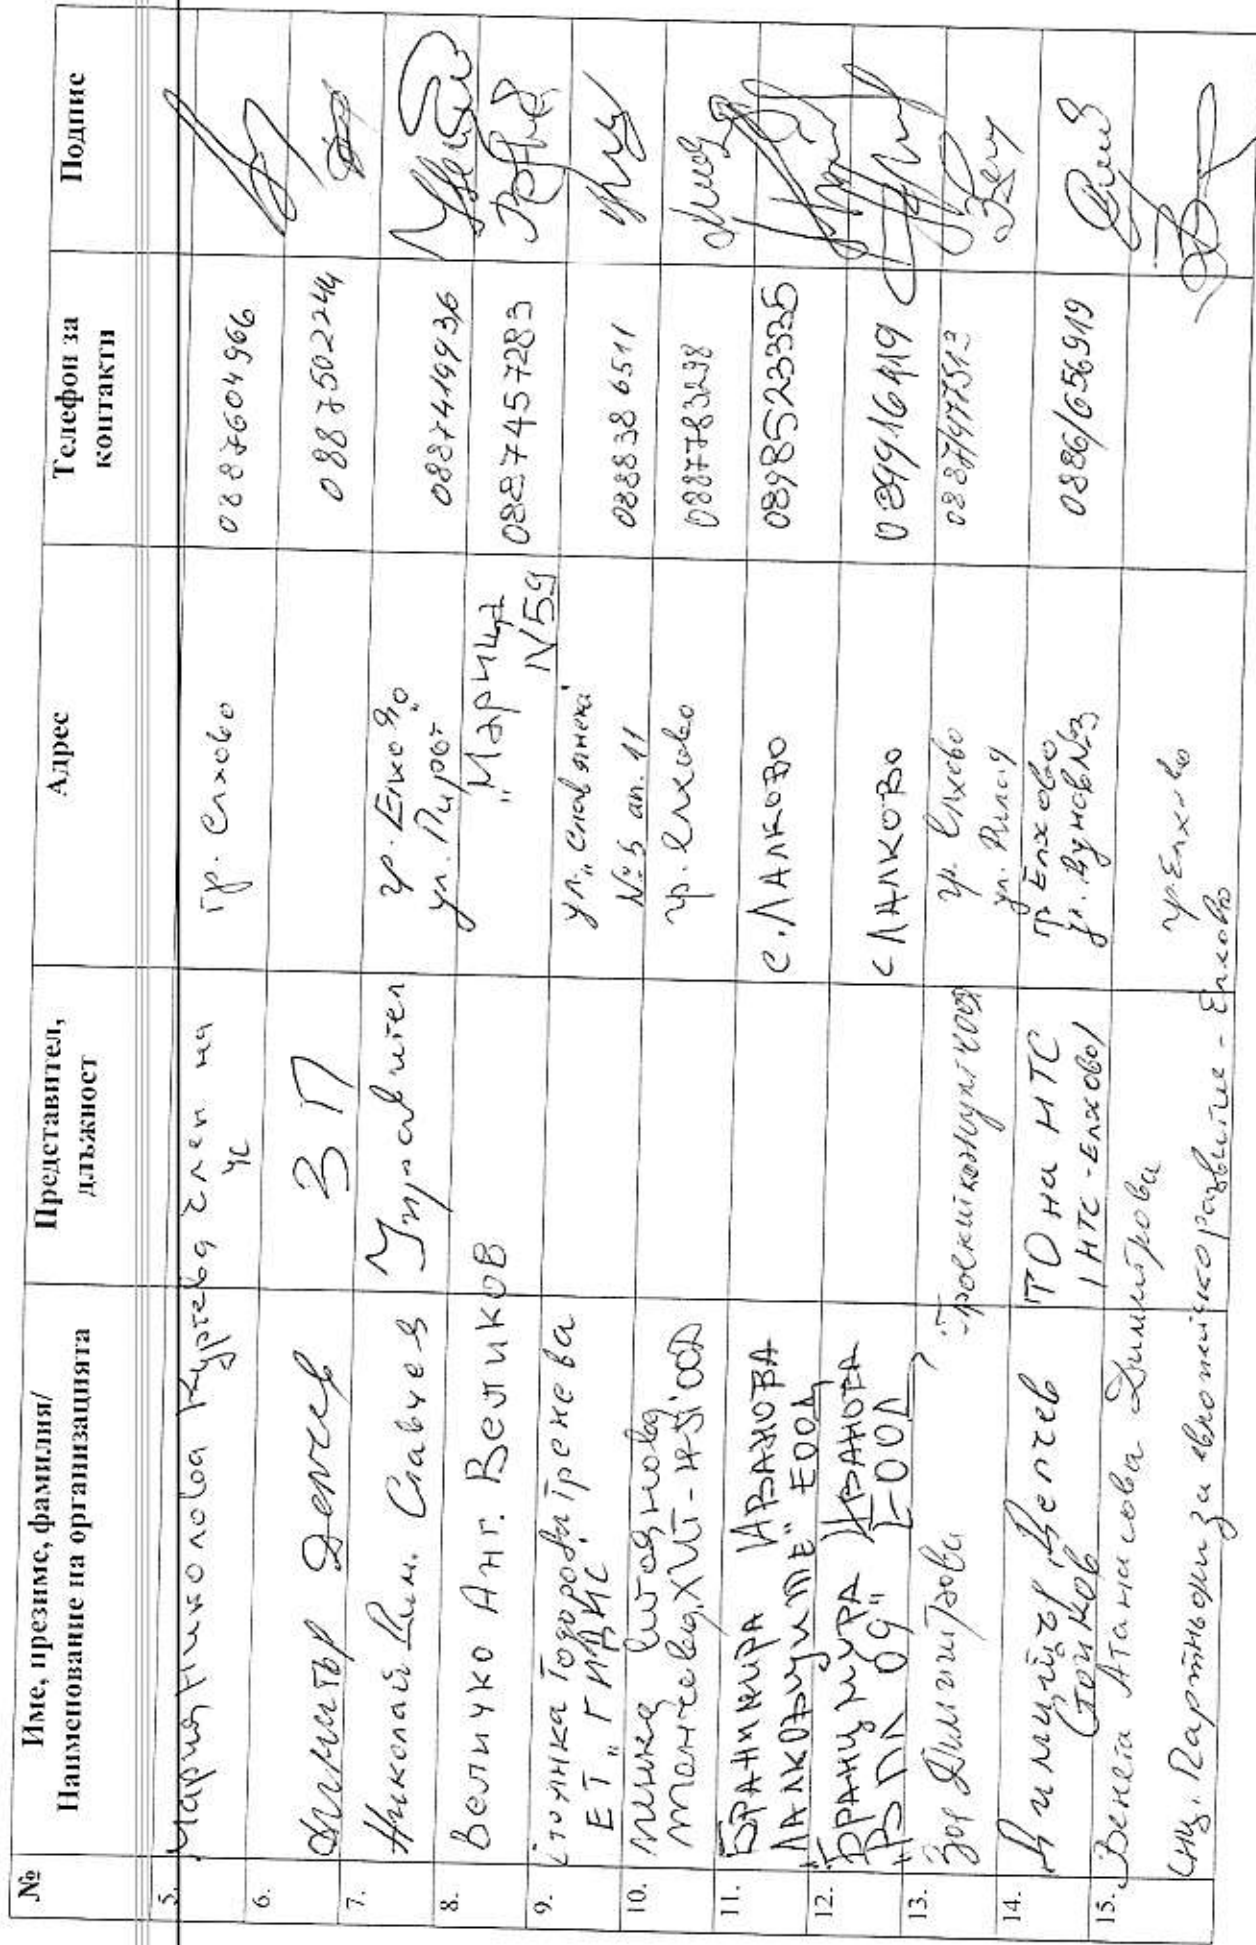 №
Име, презиме, фамилия/
Наименование на организацията
Представител,
длъжност
Адрес
Телефон за
контакти
Подпис
5.
Мария Николова Куртева член на
УС
гр. Елхово
0887604966
6.
Димитър Денчев
ЗП
0887502244
7.
Николай Дим. Славчев
Управител
гр. Елхово
ул. Пирот
0887419936
8.
Величко Анг. Великов
"Марица
N59
0887457283
9.
Стоянка Тодорова Гренева
ЕТ "
ул. "Славянска"
№5 ап. 11
0888386511
10.
Минка Стоянова
гр. Елхово
0887783298
11.
БРАНИМИРА ИВАНОВА
"ЛАЛКОВУИТЕ" ЕООД
с. ЛАЛКОВО
0898523335
12.
БРАНИМИРА ИВАНОВА
"ВПЛ 09" ЕООД
с ЛАЛКОВО
13.
Зоя Димитрова
гр. Елхово
ул. Рила 9
0887477513
14.
Димитър Делчев
Стойков
ТО на НТС
/НТС - Елхово/
гр. Елхово
ул. Вуков №3
0886/656919
15.
Венета Атанасова Димитрова
снц. Партньори за икономическо развитие - Елхово
гр. Елхово